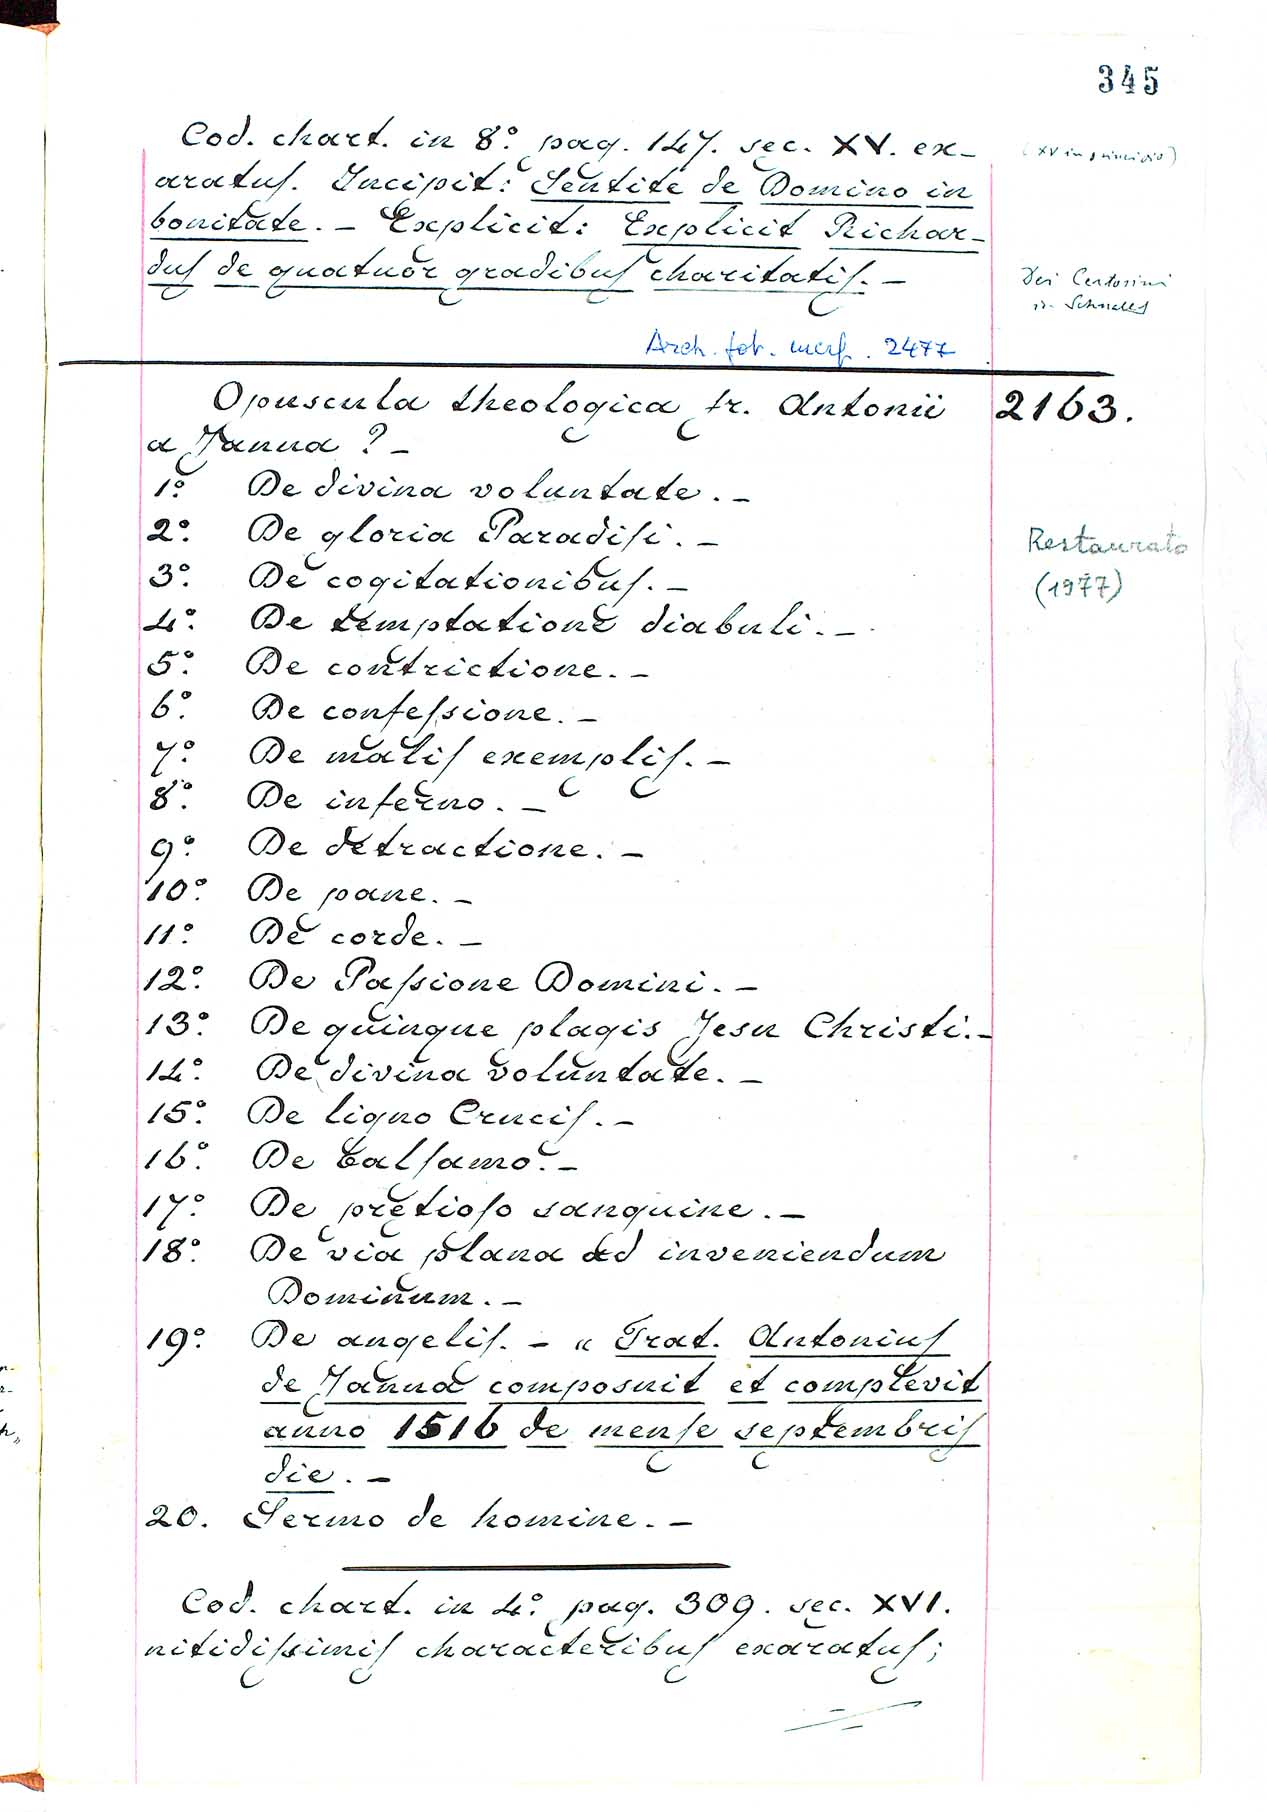 345
Cod. chart. in 8.° pag. 147. sec. XV. ex-
aratus. Incipit: Sentite de Domino in
bonitate. – Explicit: Explicit Richar-
dus de quatuor gradibus charitatis. –
(XV in principio)
Dei Certosini
in Schnals
Arch. fot. mess. 2477
Opuscula theologica fr. Antonii
a Janua ? –
2163.
1.° De divina voluntate. –
2.° De gloria Paradisi. –
3.° De cogitationibus. –
4.° De temptatione diabuli. –
5.° De contrictione. –
6.° De confessione. –
7.° De malis exemplis. –
8.° De inferno. –
9.° De detractione. –
10.° De pane. –
11.° De corde. –
12.° De Passione Domini. –
13.° De quinque plagis Jesu Christi. –
14.° De divina voluntate. –
15.° De ligno Crucis. –
16.° De balsamo. –
17.° De pretioso sanguine. –
18.° De via plana ad inveniendum
Dominum. –
19.° De angelis. – « Frat. Antonius
de Janua composuit et complevit
anno 1516 de mense septembris
die. –
20. Sermo de homine. –
Restaurato
(1977)
Cod. chart. in 4.° pag. 309. sec. XVI.
nitidissimis characteribus exaratus;